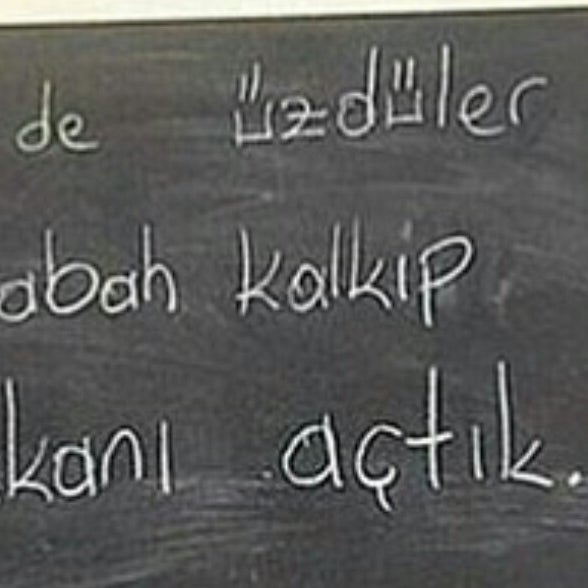 de üzdüler
abah kalkip
kanı açtık.